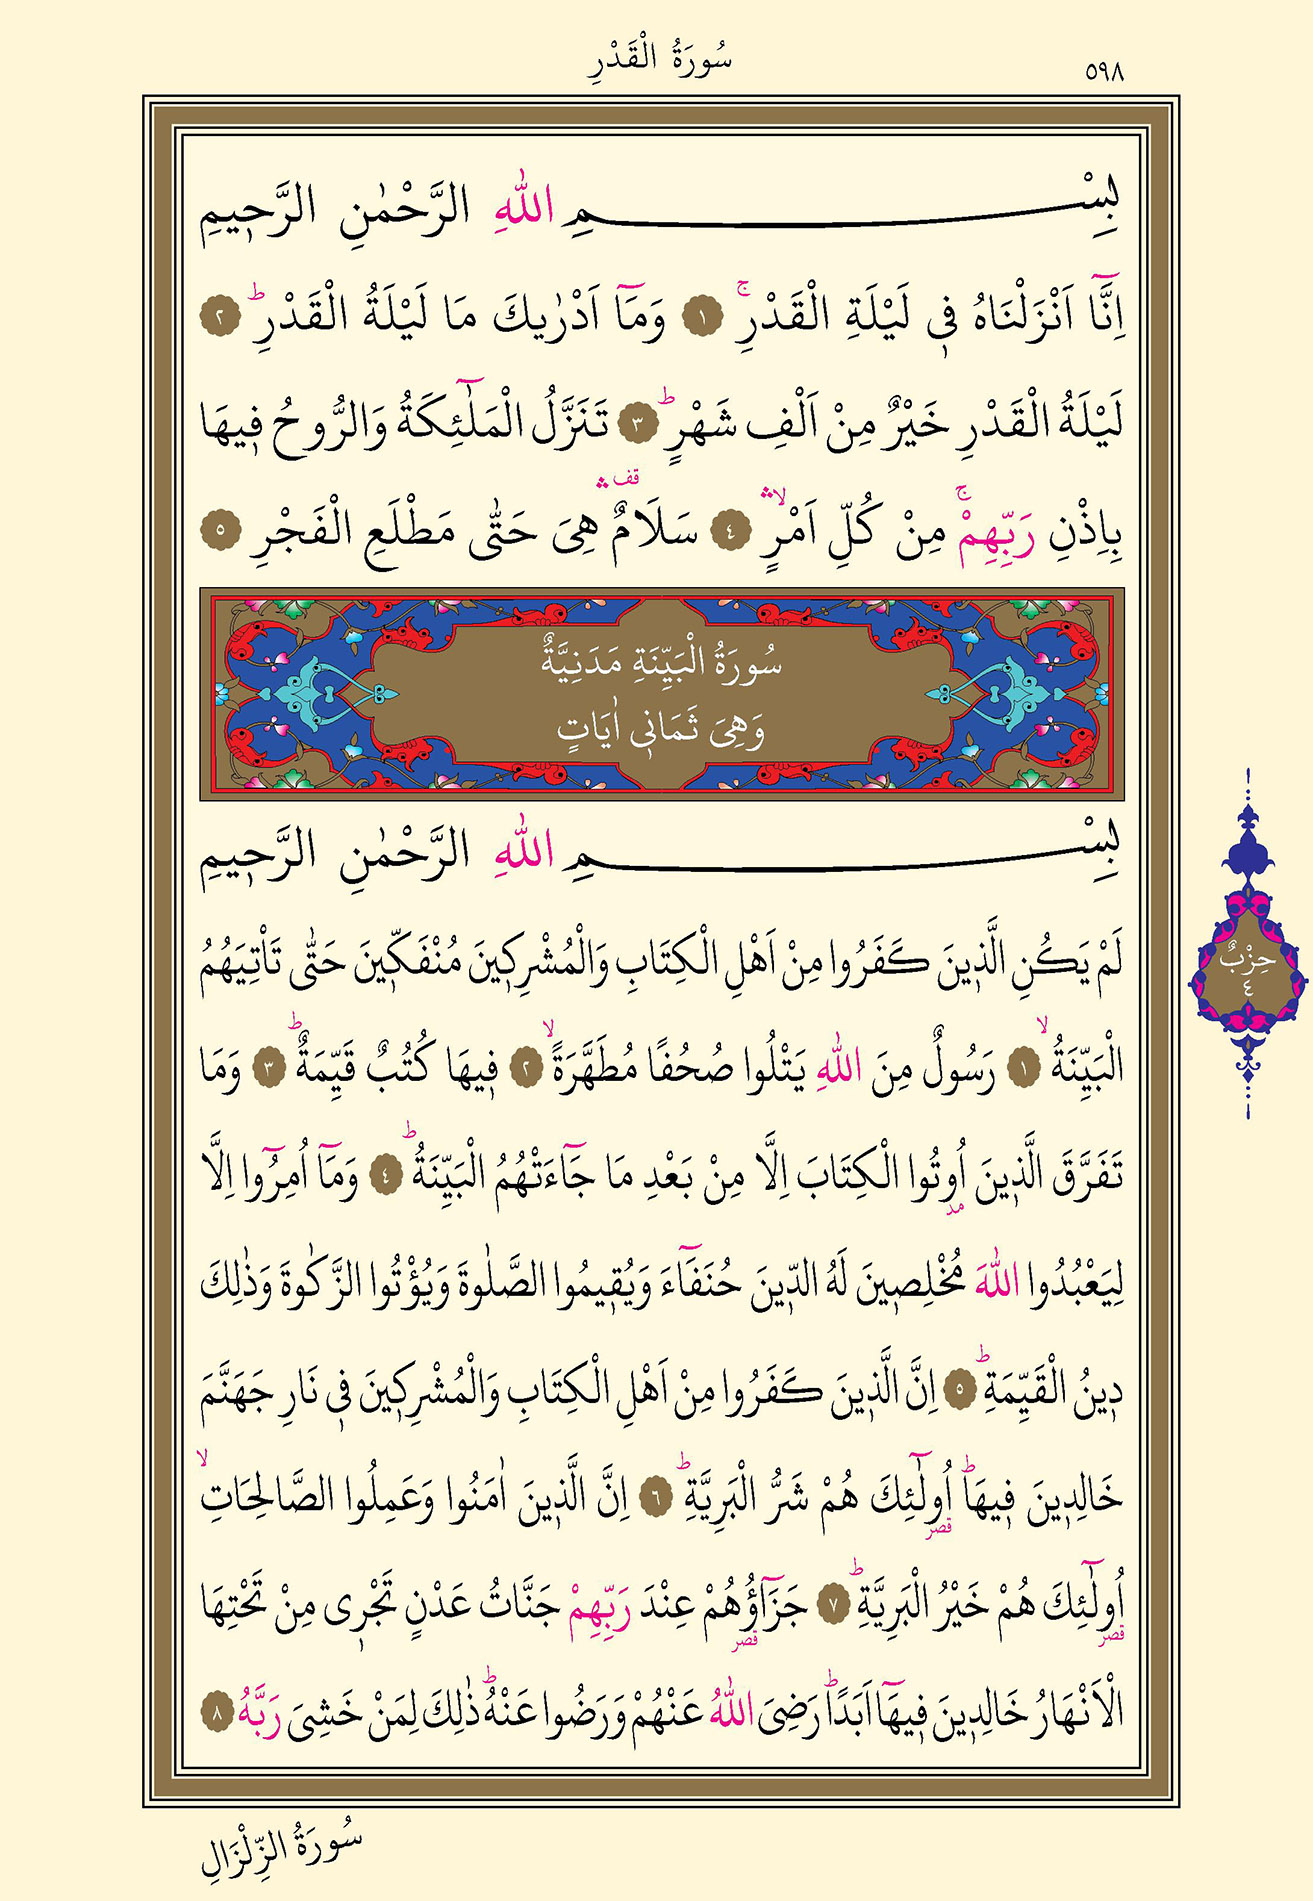 سُورَةُ الْقَدْرِ
٥٩٨
بِسْمِ اللّٰهِ الرَّحْمٰنِ الرَّح۪يمِ
اِنَّٓا اَنْزَلْنَاهُ ف۪ي لَيْلَةِ الْقَدْرِۚ ١ وَمَٓا اَدْرٰيكَ مَا لَيْلَةُ الْقَدْرِۜ ٢
لَيْلَةُ الْقَدْرِ خَيْرٌ مِنْ اَلْفِ شَهْرٍۜ ٣ تَنَزَّلُ الْمَلٰٓئِكَةُ وَالرُّوحُ ف۪يهَا
بِاِذْنِ رَبِّهِمْۚ مِنْ كُلِّ اَمْرٍۙۛ ٤ سَلَامٌ۠ۛ هِيَ حَتّٰى مَطْلَعِ الْفَجْرِ ٥
سُورَةُ الْبَيِّنَةِ مَدَنِيَّةٌ
وَهِيَ ثَمَان۪ي اٰيَاتٍ
بِسْمِ اللّٰهِ الرَّحْمٰنِ الرَّح۪يمِ
لَمْ يَكُنِ الَّذ۪ينَ كَفَرُوا مِنْ اَهْلِ الْكِتَابِ وَالْمُشْرِك۪ينَ مُنْفَكّ۪ينَ حَتّٰى تَأْتِيَهُمُ
الْبَيِّنَةُۙ ١ رَسُولٌ مِنَ اللّٰهِ يَتْلُوا صُحُفًا مُطَهَّرَةًۙ ٢ ف۪يهَا كُتُبٌ قَيِّمَةٌۜ ٣ وَمَا
تَفَرَّقَ الَّذ۪ينَ اُو۫تُوا الْكِتَابَ اِلَّا مِنْ بَعْدِ مَا جَٓاءَتْهُمُ الْبَيِّنَةُۜ ٤ وَمَٓا اُمِرُٓوا اِلَّا
لِيَعْبُدُوا اللّٰهَ مُخْلِص۪ينَ لَهُ الدّ۪ينَ حُنَفَٓاءَ وَيُق۪يمُوا الصَّلٰوةَ وَيُؤْتُوا الزَّكٰوةَ وَذٰلِكَ
د۪ينُ الْقَيِّمَةِۜ ٥ اِنَّ الَّذ۪ينَ كَفَرُوا مِنْ اَهْلِ الْكِتَابِ وَالْمُشْرِك۪ينَ ف۪ي نَارِ جَهَنَّمَ
خَالِد۪ينَ ف۪يهَاۜ اُو۬لٰٓئِكَ هُمْ شَرُّ الْبَرِيَّةِۜ ٦ اِنَّ الَّذ۪ينَ اٰمَنُوا وَعَمِلُوا الصَّالِحَاتِۙ
اُو۬لٰٓئِكَ هُمْ خَيْرُ الْبَرِيَّةِۜ ٧ جَزَٓاؤُ۬هُمْ عِنْدَ رَبِّهِمْ جَنَّاتُ عَدْنٍ تَجْر۪ي مِنْ تَحْتِهَا
الْاَنْهَارُ خَالِد۪ينَ ف۪يهَٓا اَبَدًاۜ رَضِيَ اللّٰهُ عَنْهُمْ وَرَضُوا عَنْهُۜ ذٰلِكَ لِمَنْ خَشِيَ رَبَّهُ ٨
حِزْبٌ
٤
سُورَةُ الزِّلْزَالِ